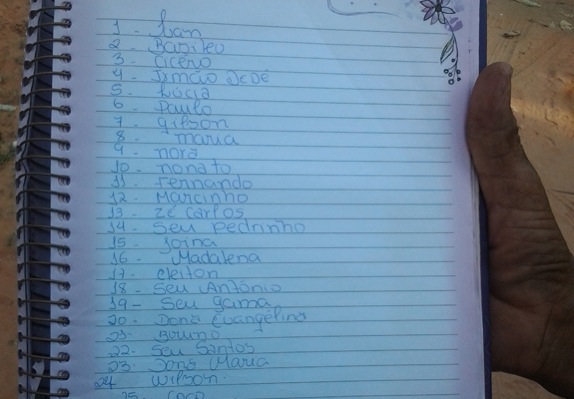 1 - Luan
2 - Basileu
3 - Cícero
4 - Simão de Zé
5 - Lúcia
6 - Paulo
7 - gilson
8 - maria
9 - nora
10 - nonato
11 - Fernando
12 - Marcinho
13 - Zé Carlos
14 - Seu Pedrinho
15 - Joina
16 - Madalena
17 - cleiton
18 - Seu Antônio
19 - Seu gama
20 - Dona Evangelina
21 - Bruno
22 - Seu Santos
23 - Dona Maria
24 Wilson
25 -